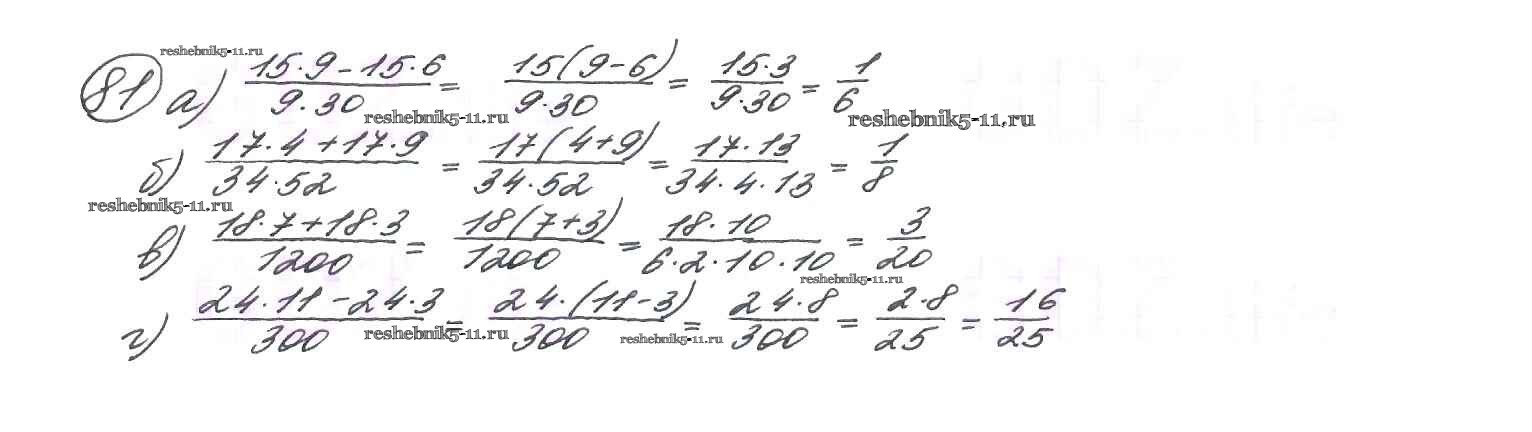 reshebnik5-11.ru
81 а) (15·9-15·6)/(9·30) = 15(9-6)/(9·30) = (15·3)/(9·30) = 1/6
reshebnik5-11.ru reshebnik5-11.ru
б) (17·4+17·9)/(34·52) = 17(4+9)/(34·52) = (17·13)/(34·4·13) = 1/8
reshebnik5-11.ru
в) (18·7+18·3)/1200 = 18(7+3)/1200 = (18·10)/(6·2·10·10) = 3/20
reshebnik5-11.ru
г) (24·11-24·3)/300 = 24·(11-3)/300 = (24·8)/300 = (2·8)/25 = 16/25
reshebnik5-11.ru reshebnik5-11.ru